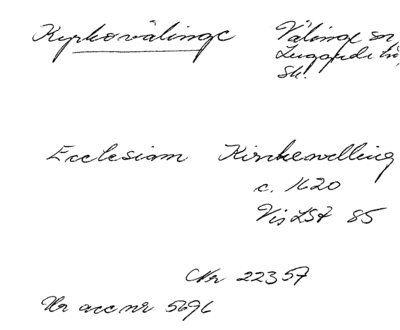 Kyrkovälinge Välinge sn
Luggude hd,
Sk.
Ecclesiam Kirkevelling
c. 1620
VisLSt 85
CNr 22357
Ur acc nr 5696